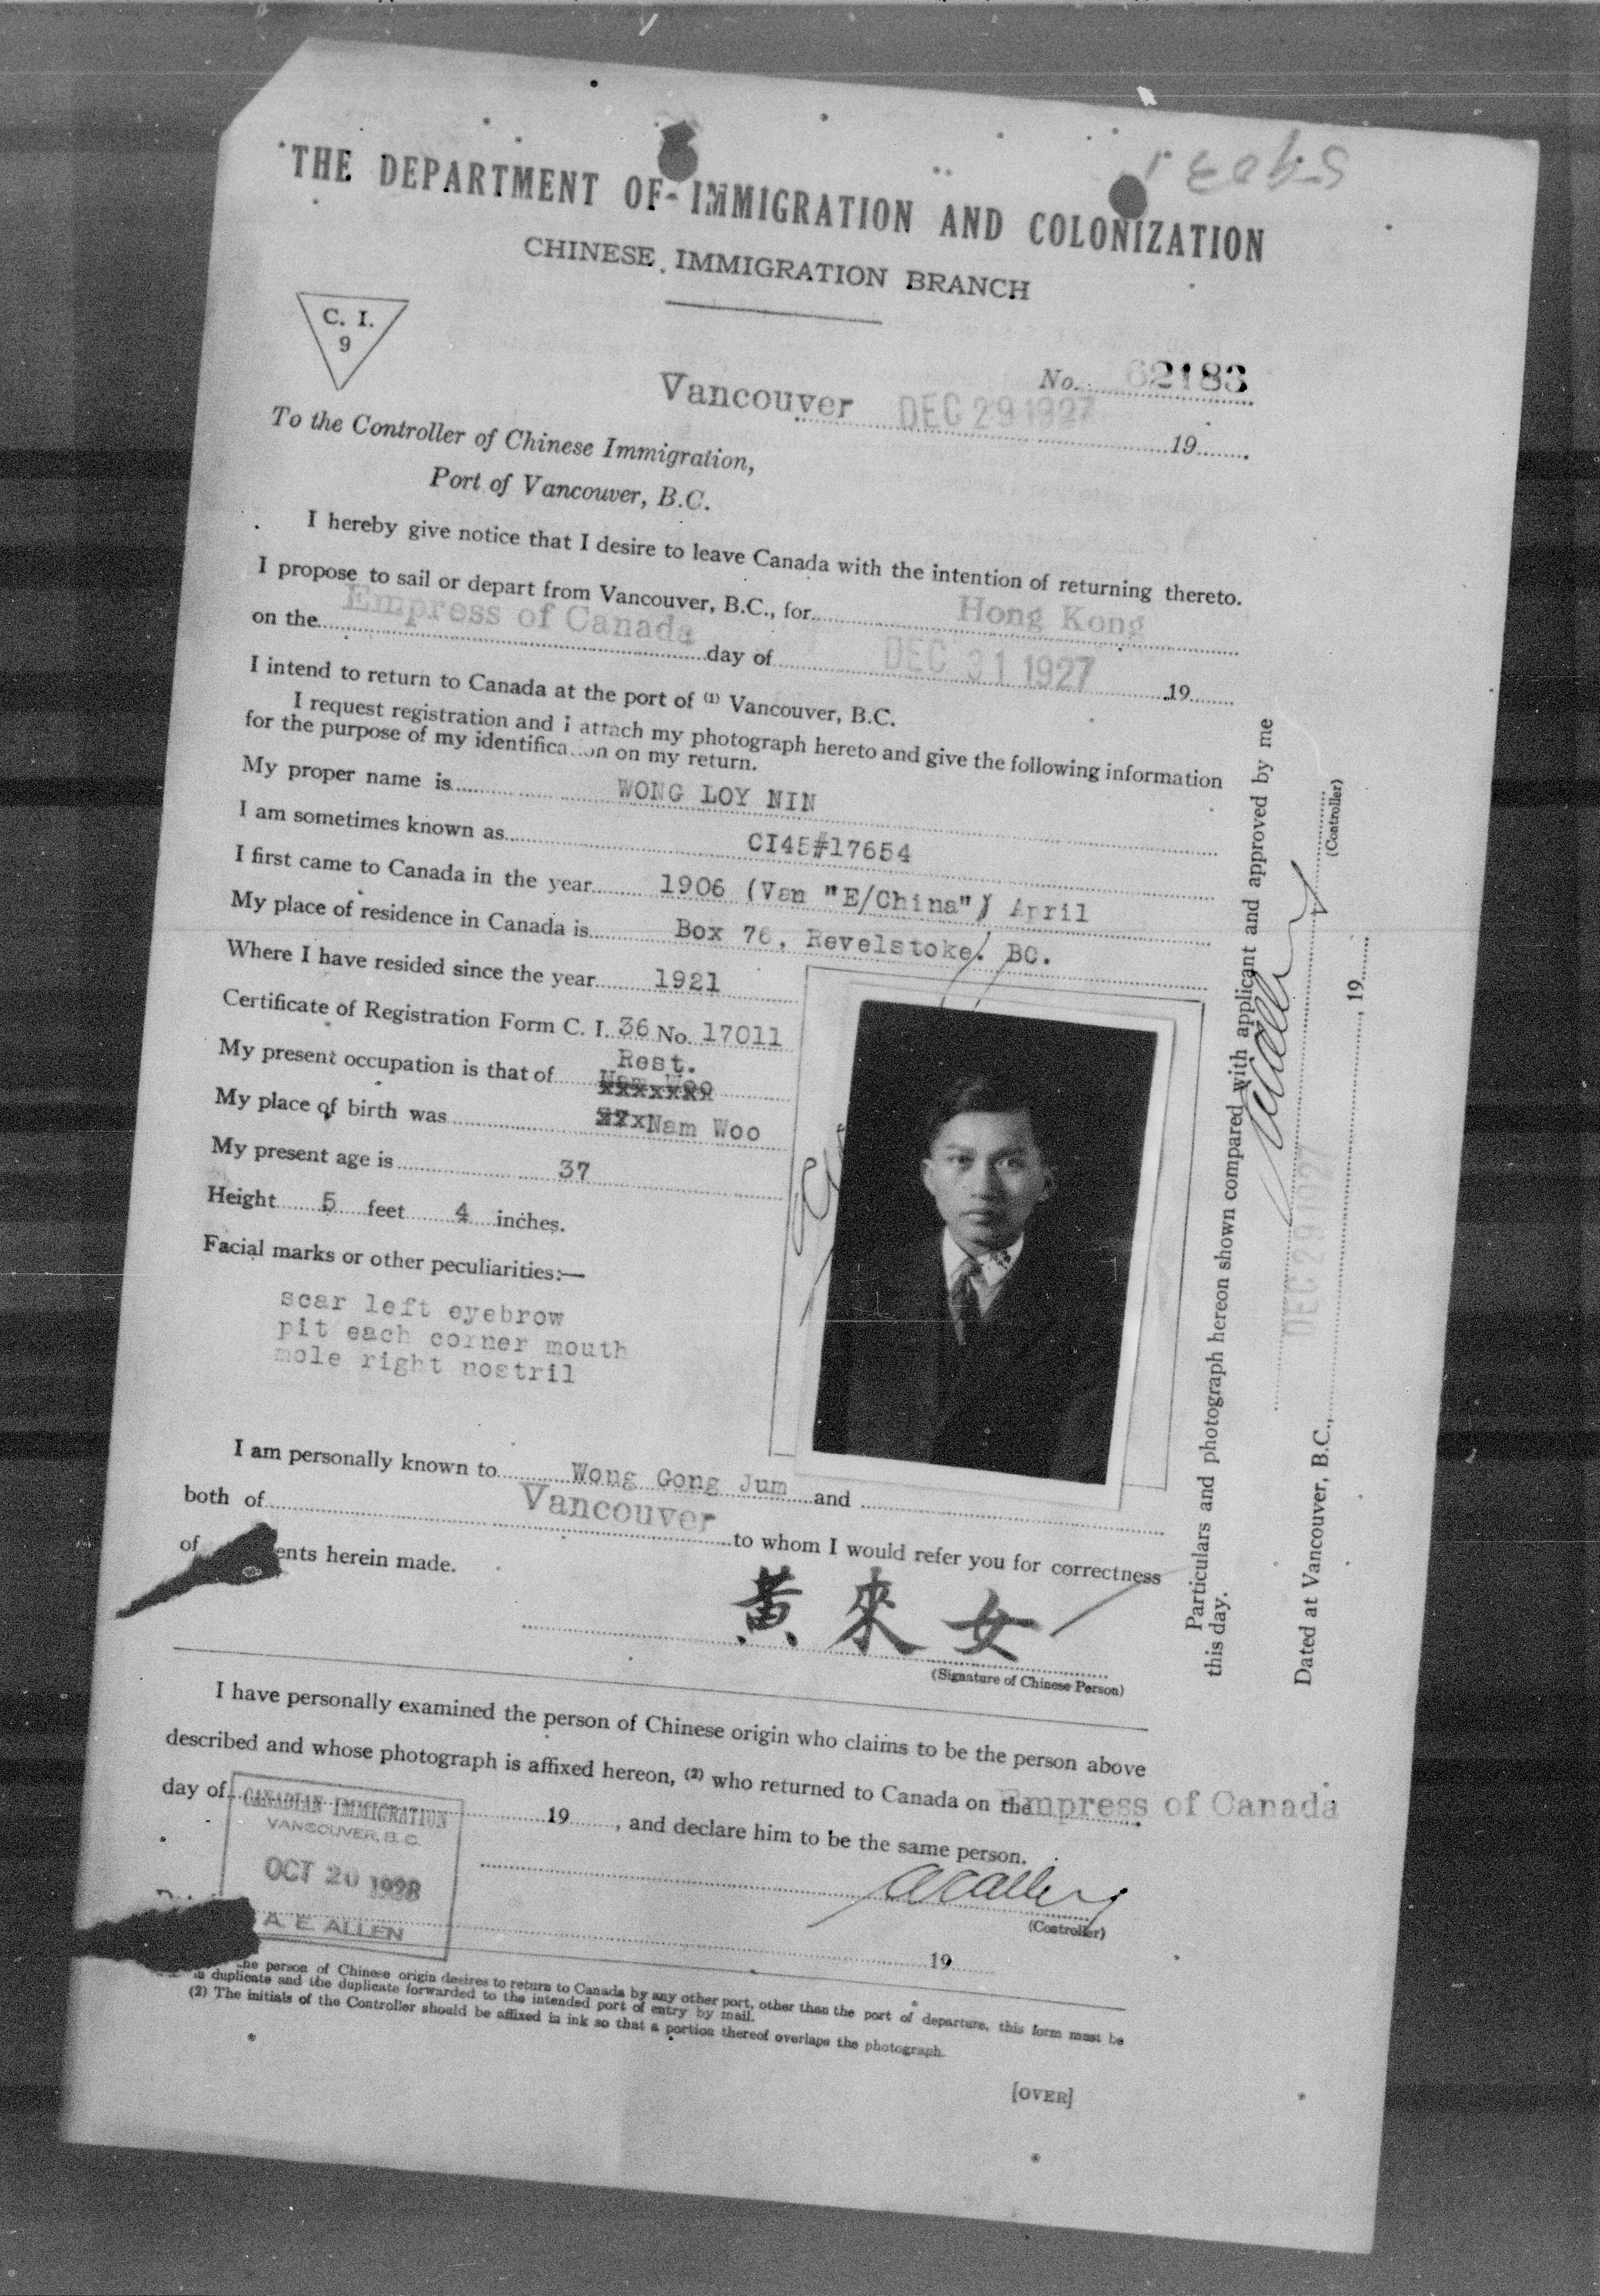 THE DEPARTMENT OF IMMIGRATION AND COLONIZATION
CHINESE IMMIGRATION BRANCH
C. I.
9
No. 62183
Vancouver DEC 29 1927 19
To the Controller of Chinese Immigration,
Port of Vancouver, B.C.
I hereby give notice that I desire to leave Canada with the intention of returning thereto.
I propose to sail or depart from Vancouver, B.C., for Hong Kong
on the Empress of Canada day of DEC 31 1927 19
I intend to return to Canada at the port of (1) Vancouver, B.C.
I request registration and i attach my photograph hereto and give the following information
for the purpose of my identifica...on on my return.
My proper name is WONG LOY NIN
I am sometimes known as CI45#17654
I first came to Canada in the year 1906 (Van "E/China") April
My place of residence in Canada is Box 76, Revelstoke. BC.
Where I have resided since the year 1921
Certificate of Registration Form C. I. 36 No. 17011
My present occupation is that of Rest.
My place of birth was Nam Woo
My present age is 37
Height 5 feet 4 inches.
Facial marks or other peculiarities:—
scar left eyebrow
pit each corner mouth
mole right nostril
I am personally known to Wong Gong Jum and
both of Vancouver to whom I would refer you for correctness
of ents herein made.
黃來女
(Signature of Chinese Person)
I have personally examined the person of Chinese origin who claims to be the person above
described and whose photograph is affixed hereon, (2) who returned to Canada on the Empress of Canada
day of 19 , and declare him to be the same person.
CANADIAN IMMIGRATION
VANCOUVER, B.C.
OCT 20 1928
A. E. ALLEN
(Controller)
19
he person of Chinese origin desires to return to Canada by any other port, other than the port of departure, this form must be
in duplicate and the duplicate forwarded to the intended port of entry by mail.
(2) The initials of the Controller should be affixed in ink so that a portion thereof overlaps the photograph.
[OVER]
Particulars and photograph hereon shown compared with applicant and approved by me
this day.
(Controller)
DEC 29 1927
Dated at Vancouver, B.C., 19